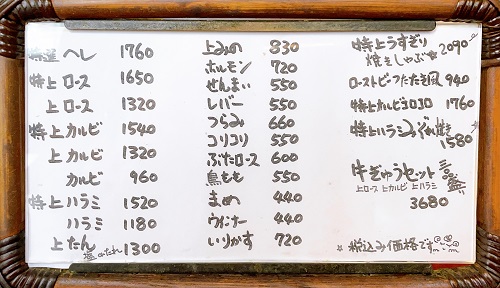 特選 ヘレ 1760
特上 ロース 1650
上 ロース 1320
特上 カルビ 1540
上 カルビ 1320
カルビ 960
特上 ハラミ 1520
ハラミ 1180
上たん 1300
塩 or たれ
上みの 830
ホルモン 720
せんまい 550
レバー 550
つらみ 660
コリコリ 550
ぶたロース 600
鳥もも 550
まめ 440
ウインナー 440
いりかす 720
特上うすぎり
焼きしゃぶ 2090
ローストビーフたたき風 940
特上カルビコロコロ 1760
特上ハラミみぞれ焼き
1580
牛ぎゅうセット 三種盛
上ロース 上カルビ 上ハラミ
3680
税込み価格です